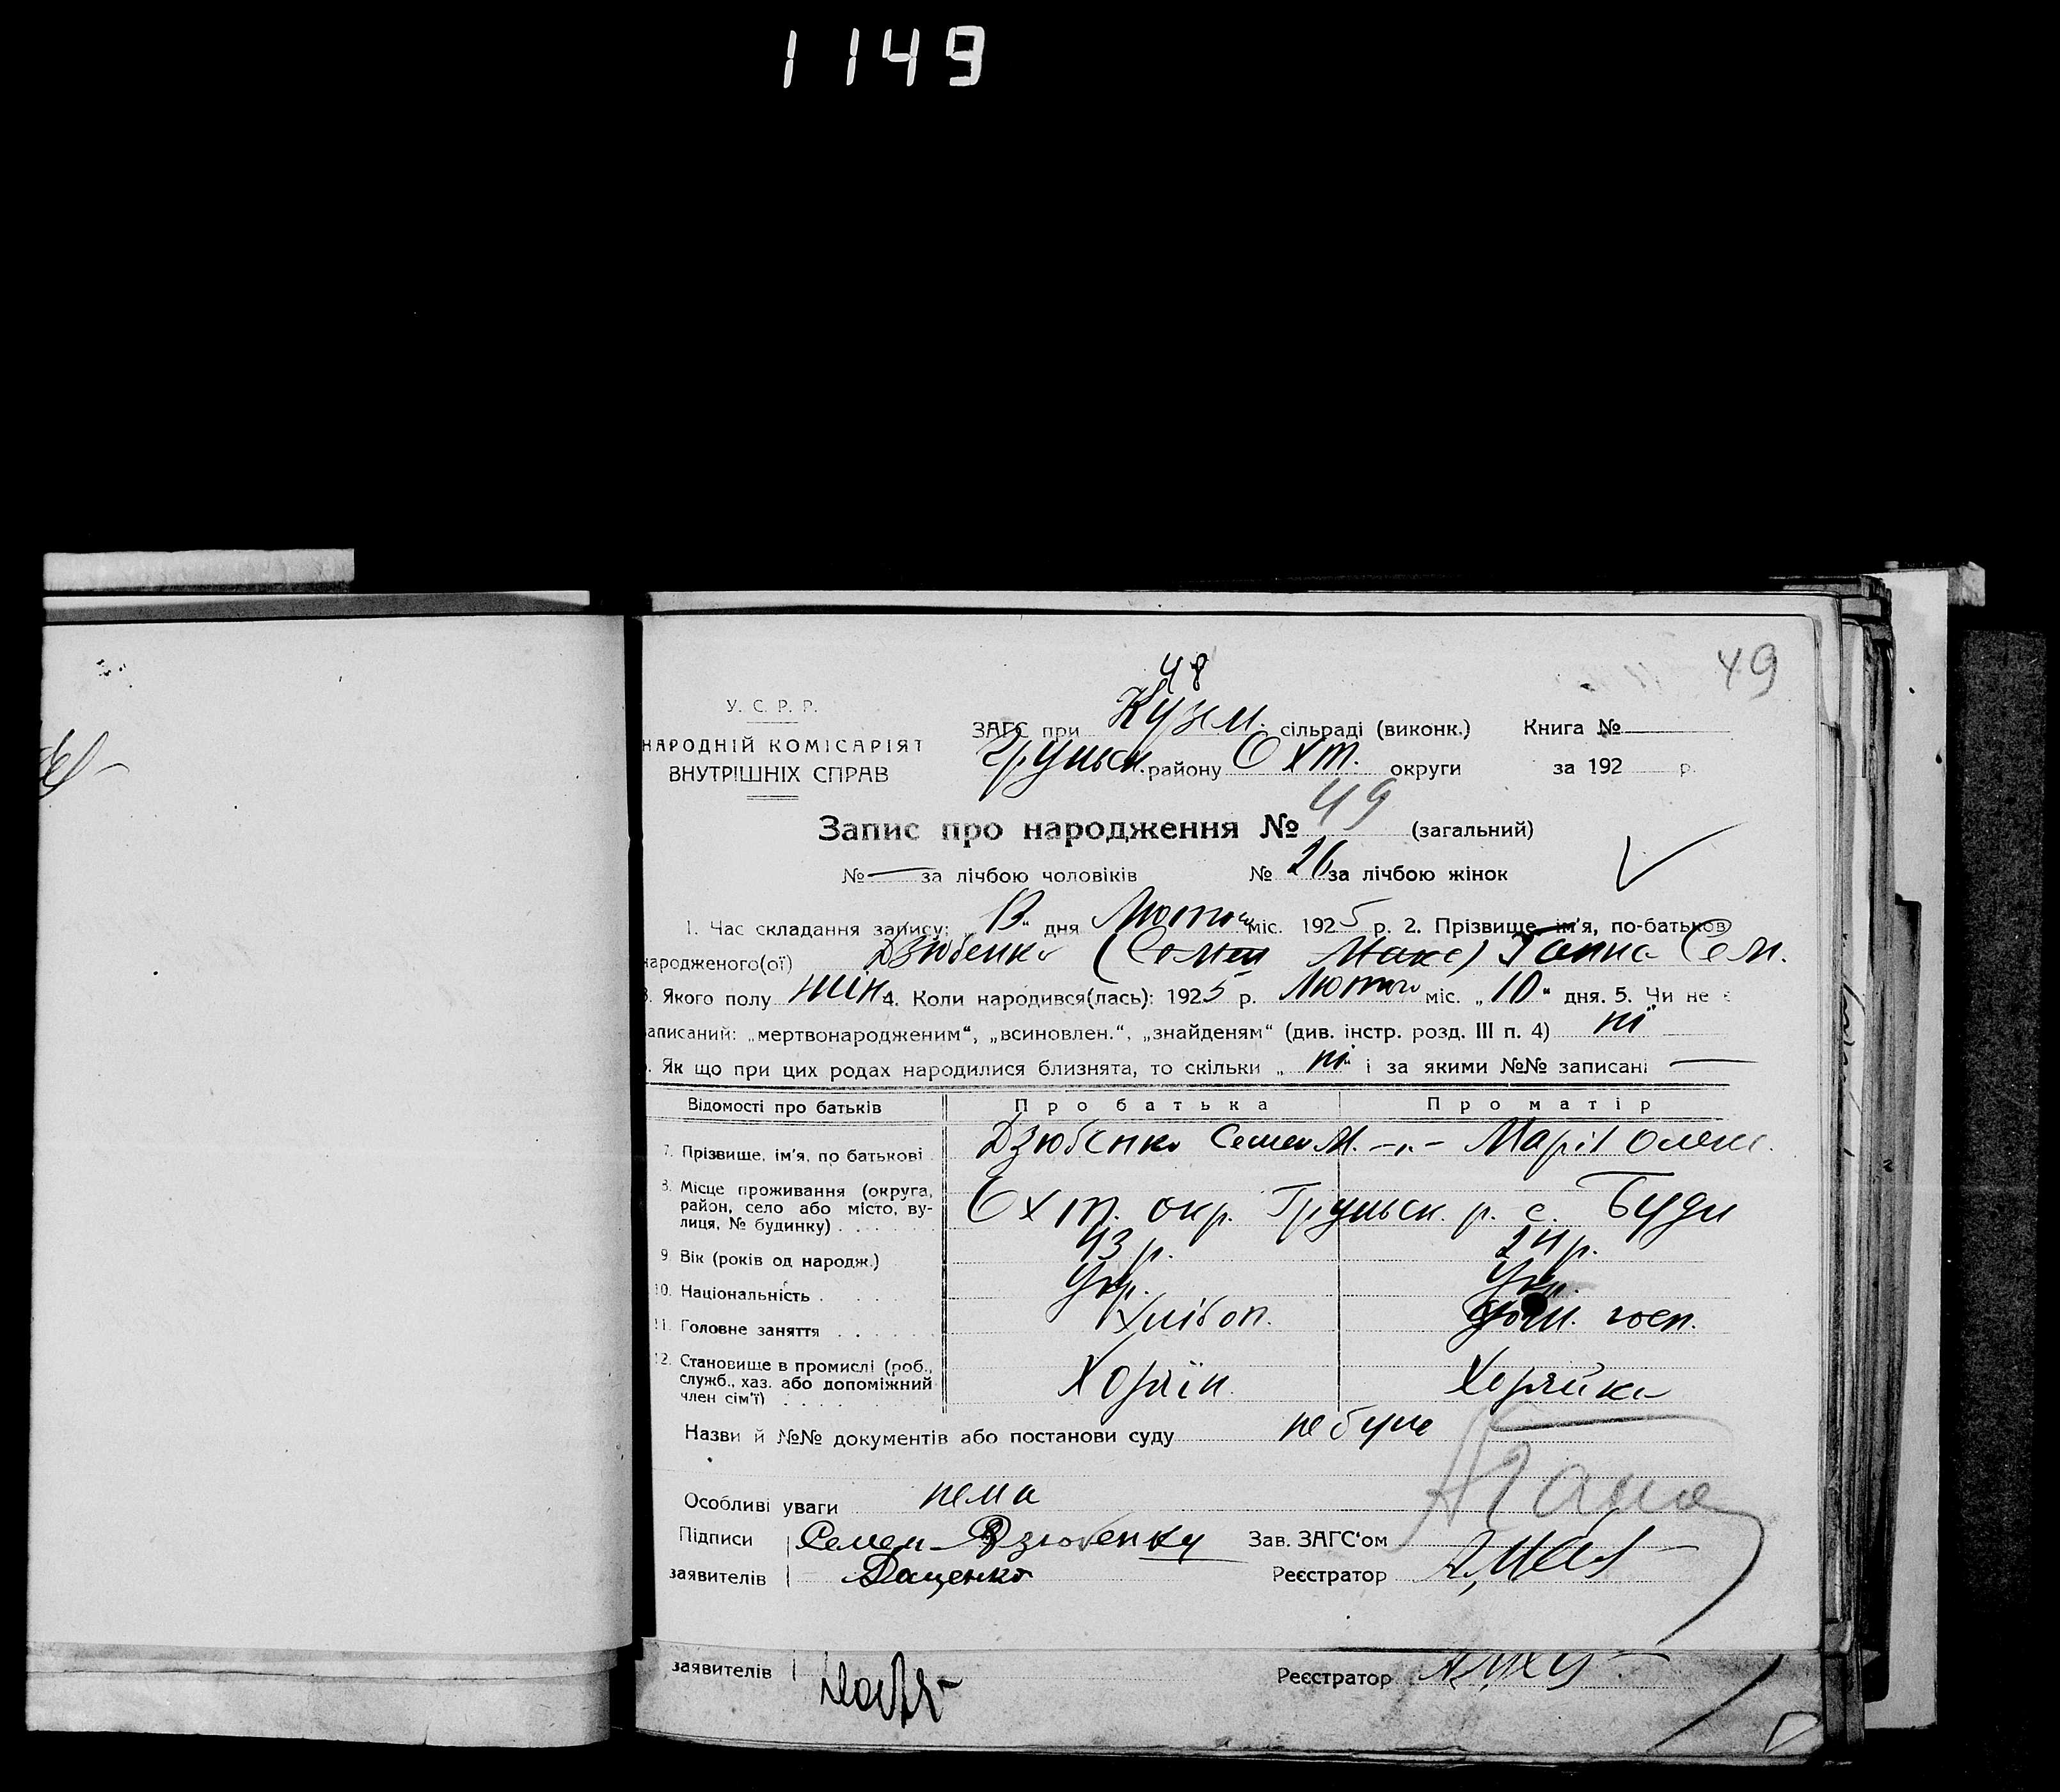 1149
49
48
У. С. Р. Р.
НАРОДНІЙ КОМІСАРІЯТ
ВНУТРІШНІХ СПРАВ
ЗАГС при Кузем. сільраді (виконк.) Книга №
Грунськ. району Охт. округи за 192 р.
Запис про народження № 49 (загальний)
№ — за лічбою чоловіків № 26 за лічбою жінок
1. Час складання запису: „13“ дня Лютого міс. 1925 р. 2. Прізвище, ім'я, по-батьков
народженого(ої) Дзюбенко Ганна Сем.
3. Якого полу жін. 4. Коли народився(лась): 1925 р. Лютого міс. „10“ дня. 5. Чи не є
записаний: „мертвонародженим“, „всиновлен.“, „знайденям“ (див. інстр. розд. III п. 4) ні
Як що при цих родах народилися близнята, то скільки „ні“ і за якими №№ записані —
Відомості про батьків Про батька Про матір
7. Прізвище, ім'я, по батькові Дзюбенко Семен М. -„- Марія Олекс.
8. Місце проживання (округа, район, село або місто, ву-
лиця, № будинку) Охт. окр. Грунськ. р. с. Буди
9. Вік (років од народж.) 43 р. 24 р.
10. Національність Укр. Укр.
11. Головне заняття Хлібоп. дом. госп.
12. Становище в промислі (роб.,
служб., хаз. або допоміжний
член сім'ї) Хозяїн. Хозяйка
Назви й №№ документів або постанови суду не було
Особливі уваги нема
Підписи Семен Дзюбенко Зав. ЗАГС'ом
заявителів Даценко Реєстратор
заявителів Реєстратор